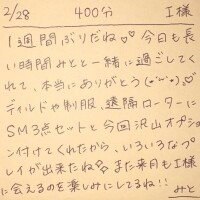 2/28 400分 I様
1週間ぶりだね♡♡ 今日も長
い時間みとと一緒に過ごしてく
れて、本当にありがとう(*˘︶˘*)♡
ディルドや制服、遠隔ローターに
SM3点セットと今回沢山オプショ
ン付けてくれたから、いろいろなプ
レイが出来たね♡。また来月もI様
に会えるのを楽しみにしてるね!!
みと